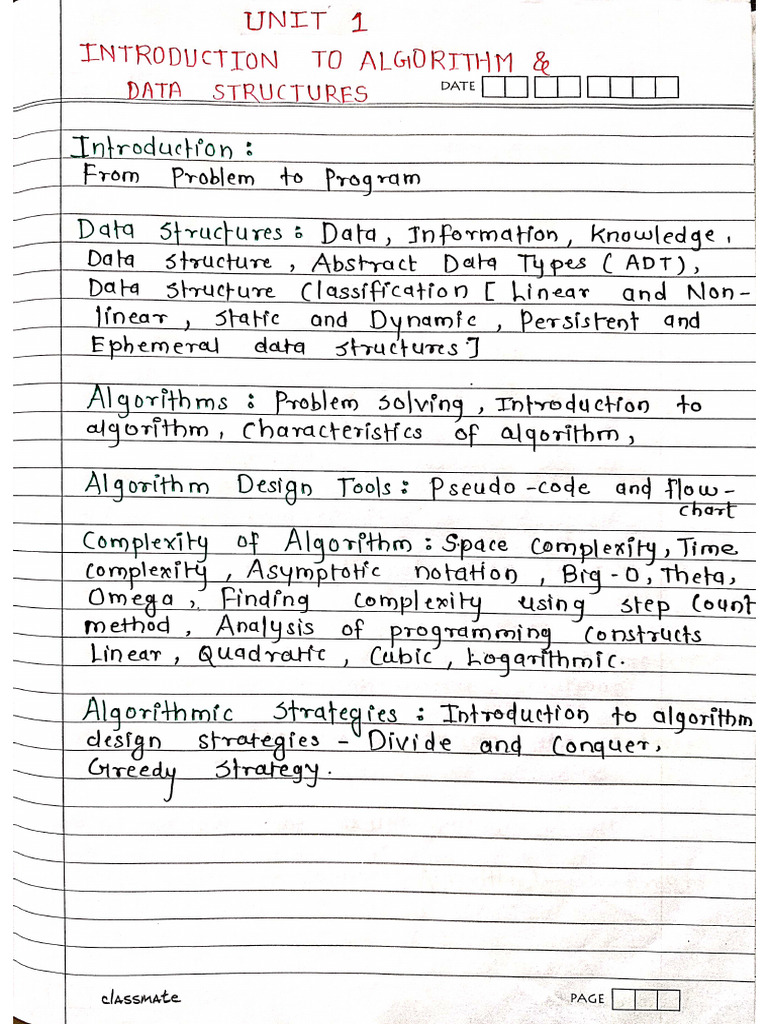 UNIT 1
INTRODUCTION TO ALGORITHM &
DATA STRUCTURES
DATE
Introduction :
From Problem to Program
Data Structures : Data, Information, Knowledge,
Data structure, Abstract Data Types ( ADT ),
Data structure Classification [ Linear and Non-
linear, static and Dynamic, Persistent and
Ephemeral data structures ]
Algorithms : Problem solving, Introduction to
algorithm, Characteristics of algorithm,
Algorithm Design Tools : Pseudo-code and flow-
chart
Complexity of Algorithm : Space complexity, Time
complexity, Asymptotic notation, Big-O, Theta,
Omega, Finding complexity using step Count
method, Analysis of programming constructs
Linear, Quadratic, Cubic, Logarithmic.
Algorithmic Strategies : Introduction to algorithm
design strategies - Divide and Conquer,
Greedy strategy.
classmate
PAGE